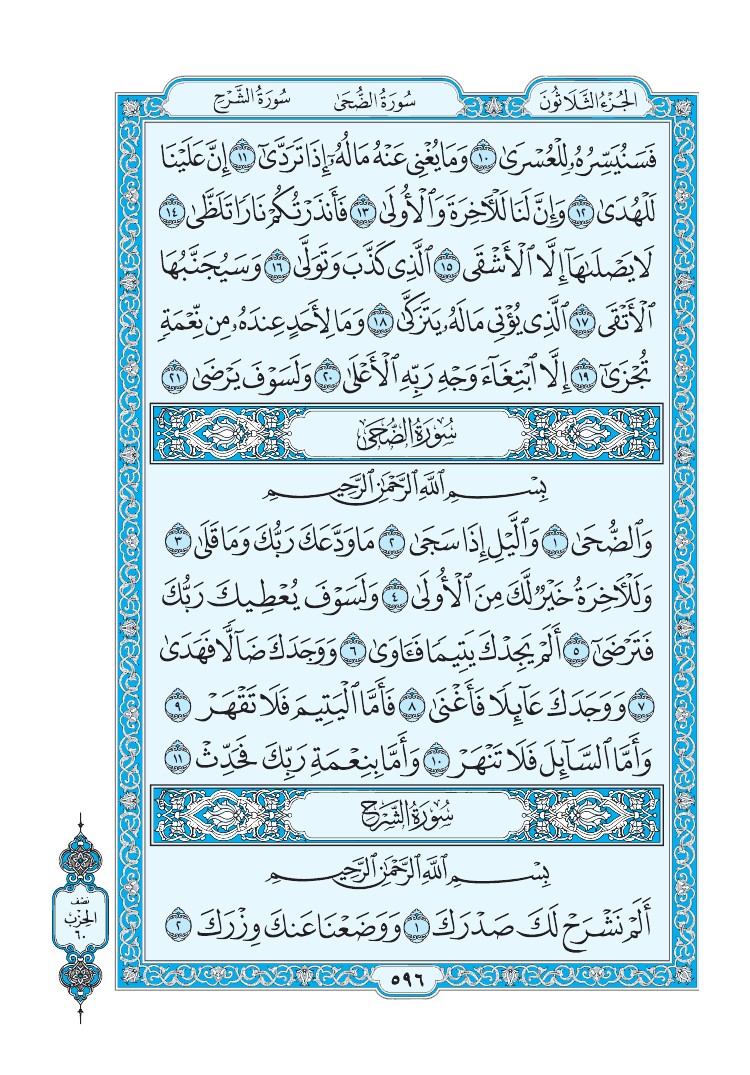 الجُزْءُ الثَّلَاثُونَ سُورَةُ الضُّحَىٰ سُورَةُ الشَّرْحِ
فَسَنُيَسِّرُهُۥ لِلْعُسْرَىٰ ١٠ وَمَا يُغْنِى عَنْهُ مَالُهُۥٓ إِذَا تَرَدَّىٰٓ ١١ إِنَّ عَلَيْنَا
لَلْهُدَىٰ ١٢ وَإِنَّ لَنَا لَلْـَٔاخِرَةَ وَٱلْأُولَىٰ ١٣ فَأَنذَرْتُكُمْ نَارًا تَلَظَّىٰ ١٤
لَا يَصْلَىٰهَآ إِلَّا ٱلْأَشْقَى ١٥ ٱلَّذِى كَذَّبَ وَتَوَلَّىٰ ١٦ وَسَيُجَنَّبُهَا
ٱلْأَتْقَى ١٧ ٱلَّذِى يُؤْتِى مَالَهُۥ يَتَزَكَّىٰ ١٨ وَمَا لِأَحَدٍ عِندَهُۥ مِن نِّعْمَةٍ
تُجْزَىٰٓ ١٩ إِلَّا ٱبْتِغَآءَ وَجْهِ رَبِّهِ ٱلْأَعْلَىٰ ٢٠ وَلَسَوْفَ يَرْضَىٰ ٢١
سُورَةُ الضُّحَىٰ
بِسْمِ ٱللَّهِ ٱلرَّحْمَٰنِ ٱلرَّحِيمِ
وَٱلضُّحَىٰ ١ وَٱلَّيْلِ إِذَا سَجَىٰ ٢ مَا وَدَّعَكَ رَبُّكَ وَمَا قَلَىٰ ٣
وَلَلْـَٔاخِرَةُ خَيْرٌ لَّكَ مِنَ ٱلْأُولَىٰ ٤ وَلَسَوْفَ يُعْطِيكَ رَبُّكَ
فَتَرْضَىٰٓ ٥ أَلَمْ يَجِدْكَ يَتِيمًا فَـَٔاوَىٰ ٦ وَوَجَدَكَ ضَآلًّا فَهَدَىٰ
٧ وَوَجَدَكَ عَآئِلًا فَأَغْنَىٰ ٨ فَأَمَّا ٱلْيَتِيمَ فَلَا تَقْهَرْ ٩
وَأَمَّا ٱلسَّآئِلَ فَلَا تَنْهَرْ ١٠ وَأَمَّا بِنِعْمَةِ رَبِّكَ فَحَدِّثْ ١١
سُورَةُ الشَّرْحِ
بِسْمِ ٱللَّهِ ٱلرَّحْمَٰنِ ٱلرَّحِيمِ
أَلَمْ نَشْرَحْ لَكَ صَدْرَكَ ١ وَوَضَعْنَا عَنكَ وِزْرَكَ ٢
نصف
الحزب
٦٠
٥٩٦